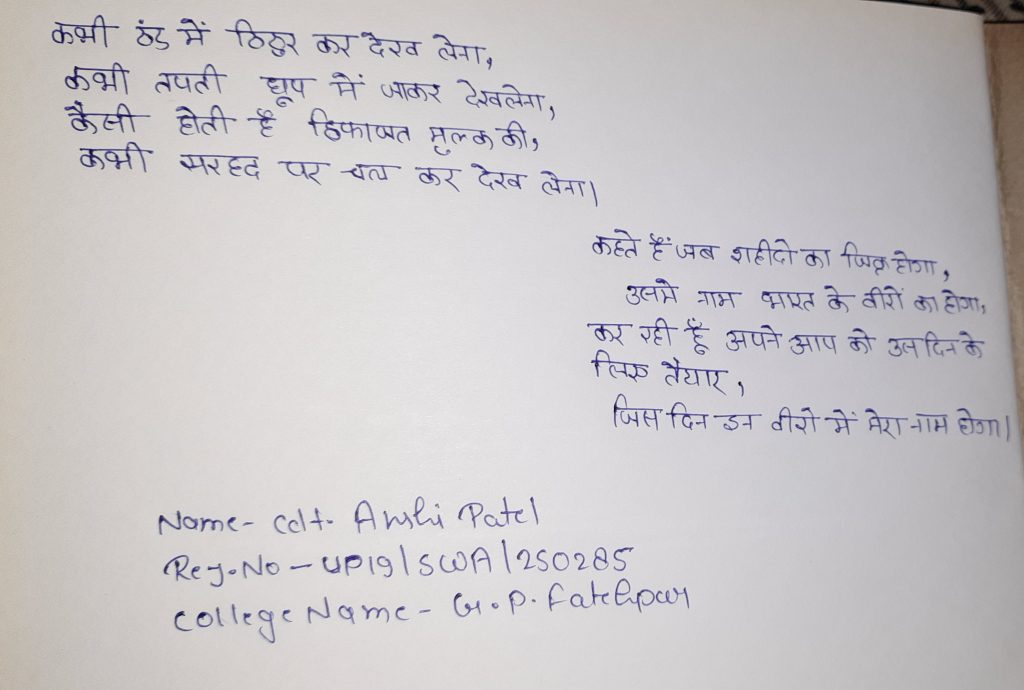 कभी ठंड में ठिठुर कर देख लेना,
कभी तपती धूप में जाकर देखलेना,
कैसी होती है हिफाजत मुल्क की,
कभी सरहद पर चल कर देख लेना।
कहते हैं जब शहीदो का जिक्र होगा,
उसमे नाम भारत के वीरों का होगा,
कर रही हूँ अपने आप को उस दिन के
लिए तैयार,
जिस दिन इन वीरो में मेरा नाम होगा।
Name- Cdt. Anshi Patel
Reg.No - UP19/SWA/250285
College Name - G.P. Fatehpur